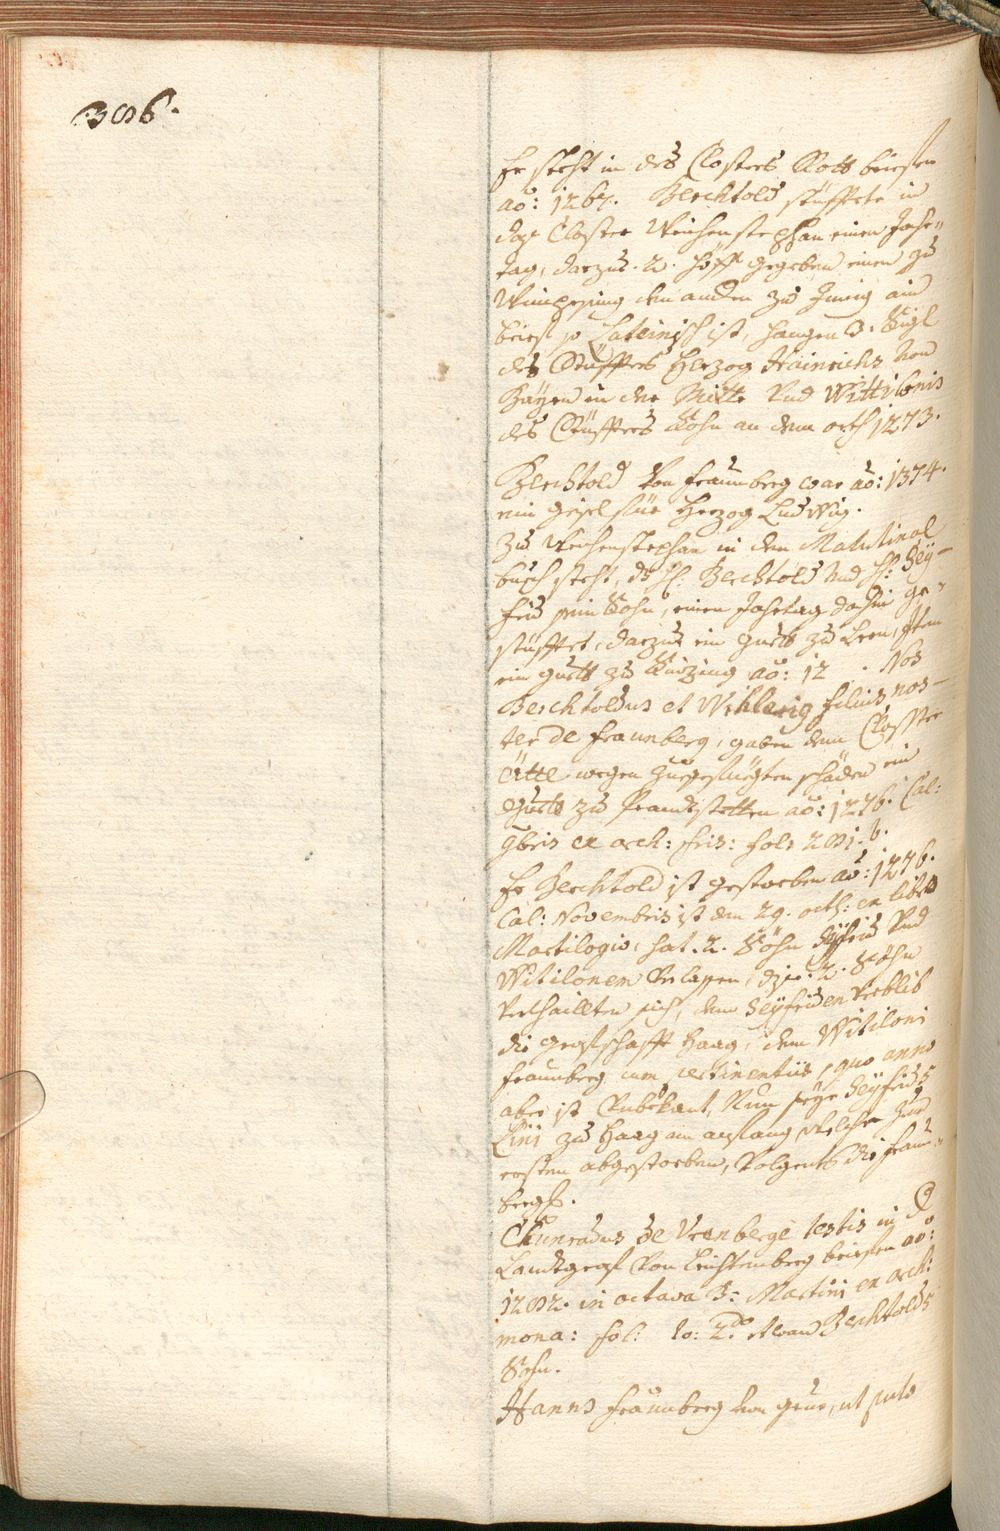 .386.
Er steht in des Closters Rott briefen
ao: 1267. Berchtold stüfftete in
das Closter Weichenstephan einen Jahr=
tag, darzue .2. Höff gegeben einen zu
den andern zu ain
brief so Lateinisch ist, hangen 3. Sigl
des Stüffters Herzog Hainrichs von
Bäyrn in der Mitte Und Wittilonis
des Stüffters Sohn an dem orth 1273.
Berchtold Von Fraunberg war ao: 1374.
ein geisel für Herzog Ludwig.
Zu Weichenstephan in dem Matutinal
buech steht, ds H: Berchtold Und H: Sey=
frid sein Sohn, einen Jahrtag dahin ge=
stüfftet, darzue ein guett zu Lern, Item
ein guett zu ao: 12 . Nos
Berchtoldus et filius nos=
ter de Fraunberg, gaben dem Closster
Ätte wegen zuegefüegten schäden ein
guett zu Prandtstetten ao: 1276. Cal:
9bris ex arch: fris: fol: 281. b.
Er Berchtold ist gestorben ao: 1276.
Cal: Novembris ist den 29. octb: ex libro
Martilogio, hat .2. Söhn Seyfrid Und
Witilonem Verlassen, dise .2. Söhn
Verthaillten sich, dem Seyfriden Verblib
die grafschafft Haag, dem Witiloni
Fraunberg cum pertinentiis, quo anno
aber ist Unbekant, Nun seye Seyfrids
Lini zu Haag am anfang, welche zum
ersten abgestorben, Volgents die Fraun=
bergs.
Chunradus de Vrenberge testis in
Landtgraf Von Leichtenberg briefen ao:
1282. in octava S: Martini ex arch:
mona: fol: to: 2do. Berchtolds
Sohn.
Hanns Fraunberg von ut puto